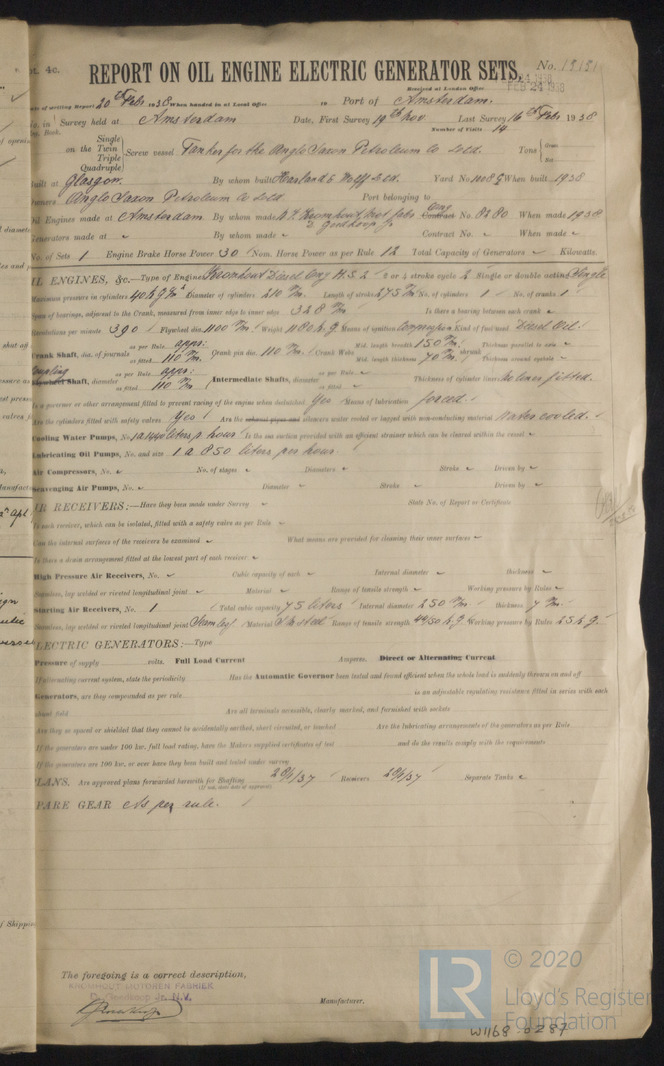 pt. 4c.
REPORT ON OIL ENGINE ELECTRIC GENERATOR SETS.
No. 13131
Received at London Office
FEB 24 1938
Date of writing Report 20th Feb 1938 When handed in at Local Office 19 Port of Amsterdam.
No. in Reg. Book. Survey held at Amsterdam Date, First Survey 19th Nov Last Survey 16th Feb 1938
Number of Visits 14
Single on the Twin Triple Quadruple Screw vessel Tanker for the Anglo Saxon Petroleum Co Ltd. Tons Gross Net
Built at Glasgow. By whom built Harland & Wolff Ltd. Yard No. 1008 G When built 1938
Owners Anglo Saxon Petroleum Co Ltd Port belonging to
Oil Engines made at Amsterdam By whom made Kromhout Mot. Fabr. D. Goedkoop Jr Eng Contract No. 8280 When made 1938
Generators made at By whom made Contract No. When made
No. of Sets 1 Engine Brake Horse Power 30 Nom. Horse Power as per Rule 12 Total Capacity of Generators Kilowatts.
OIL ENGINES, &c.—Type of Engine Kromhout Diesel 2 or 4 stroke cycle 2 Single or double acting Single
Maximum pressure in cylinders Diameter of cylinders 210 m/m Length of stroke 275 m/m No. of cylinders 1 No. of cranks 1
Span of bearings, adjacent to the Crank, measured from inner edge to inner edge 328 m/m Is there a bearing between each crank
Revolutions per minute 390 Flywheel dia. 1100 m/m Weight 1180 kg Means of ignition compression Kind of fuel used Diesel Oil
Crank Shaft, dia. of journals as per Rule appr. as fitted 110 m/m Crank pin dia. 110 m/m Crank Webs Mid. length breadth 150 m/m Mid. length thickness 70 m/m shrunk Thickness parallel to axis Thickness around eyehole
Coupling Flywheel Shaft, diameter as per Rule appr. as fitted 110 m/m Intermediate Shafts, diameter as per Rule as fitted Thickness of cylinder liners No liner fitted.
Is a governor or other arrangement fitted to prevent racing of the engine when declutched Yes Means of lubrication forced.
Are the cylinders fitted with safety valves Yes Are the exhaust pipes and silencers water cooled or lagged with non-conducting material Water cooled.
Cooling Water Pumps, No. 1 a 1440 liters p hour Is the sea suction provided with an efficient strainer which can be cleared within the vessel
Lubricating Oil Pumps, No. and size 1 a 850 liters per hour
Air Compressors, No. No. of stages Diameters Stroke Driven by
Scavenging Air Pumps, No. Diameter Stroke Driven by
AIR RECEIVERS:—Have they been made under Survey State No. of Report or Certificate
Is each receiver, which can be isolated, fitted with a safety valve as per Rule
Can the internal surfaces of the receivers be examined What means are provided for cleaning their inner surfaces
Is there a drain arrangement fitted at the lowest part of each receiver
High Pressure Air Receivers, No. Cubic capacity of each Internal diameter thickness
Seamless, lap welded or riveted longitudinal joint Material Range of tensile strength Working pressure by Rules
Starting Air Receivers, No. 1 Total cubic capacity 75 liters Internal diameter 250 m/m thickness 7 m/m
Seamless, lap welded or riveted longitudinal joint Seamless Material S.M. steel Range of tensile strength 44/50 kg Working pressure by Rules 25 kg
ELECTRIC GENERATORS:—Type
Pressure of supply volts. Full Load Current Amperes. Direct or Alternating Current
If alternating current system, state the periodicity Has the Automatic Governor been tested and found efficient when the whole load is suddenly thrown on and off
Generators, are they compounded as per rule is an adjustable regulating resistance fitted in series with each
shunt field Are all terminals accessible, clearly marked, and furnished with sockets
Are they so spaced or shielded that they cannot be accidentally earthed, short circuited, or touched Are the lubricating arrangements of the generators as per Rule
If the generators are under 100 kw. full load rating, have the Makers supplied certificates of test and do the results comply with the requirements
If the generators are 100 kw. or over have they been built and tested under survey
PLANS. Are approved plans forwarded herewith for Shafting 29/1/37 Receivers 29/1/37 Separate Tanks
(If not, state date of approval)
SPARE GEAR As per rule.
The foregoing is a correct description,
KROMHOUT MOTOREN FABRIEK
D. Goedkoop Jr. N.V.
Manufacturer.
LR
© 2020
Lloyd's Register
Foundation
W1168-0287